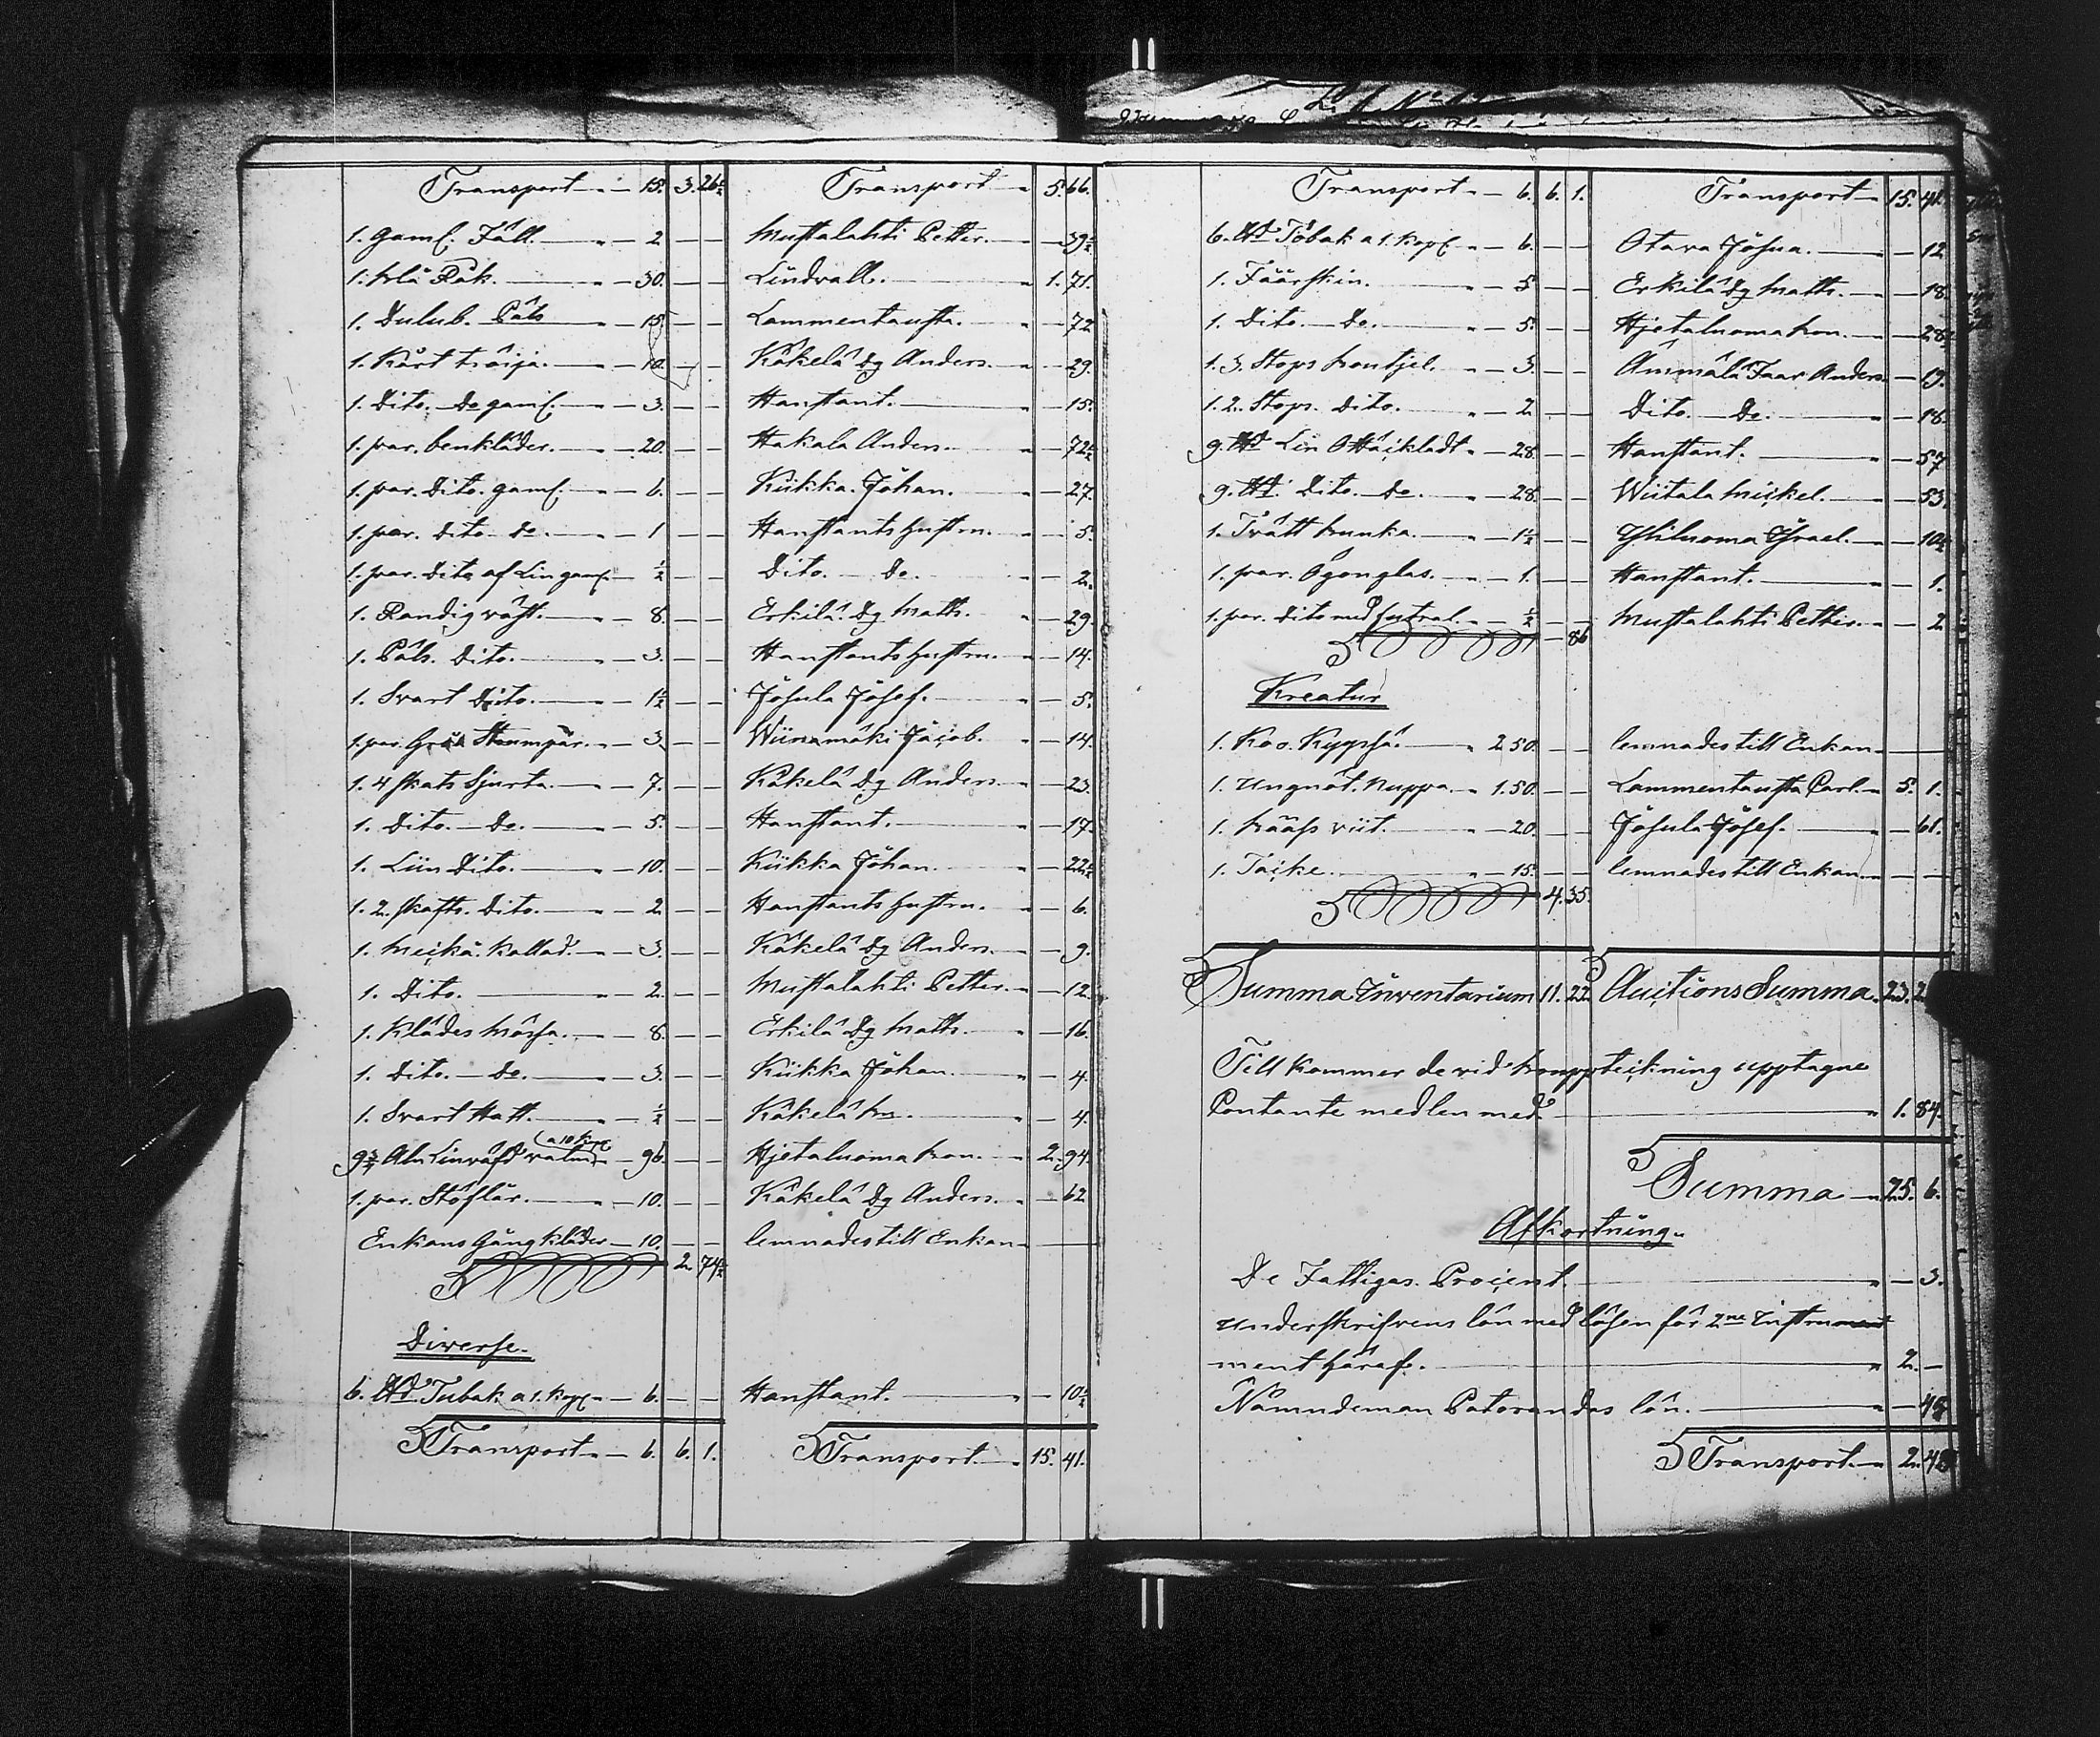 Transport " — 15. 3. 26½ Transport " 5. 66.
1. Gaml. Fäll. " — 2 — — Mustalahti Petter. " — 39½
1. blå Råk. " — 30. — — Lindvall. " 1. 71.
1. Dulub. Päls " — 15. — — Lammentausta. " — 72
1. Kårt tröija. " — 10. — — Käkelä Dg Anders. " — 29.
1. Dito. Do gaml. " — 3. — — Hanstant. " — 15.
1. par. benkläder. " — 20. — — Hakala Anders. " — 72½
1. par. Dito. gaml. " — 6. — — Kiikka Johan. " — 27.
1. par. Dito Do. " — 1 — — Hanstants hustru. " — 5.
1. par. Dito af Lin gaml. — ½ — — Dito. Do. " — 2.
1. Randig väst. " — 8. — — Erkilä Dg Matts. " — 29.
1. Päls. Dito. " — 3. — — Hanstants hustru. " — 14.
1. Svart Dito. " — 1½ — — Josula Josef. " — 5.
1. par. Grå Strumpär. " — 3. — — Wiinamäki Jacob. " — 14.
1. 4 skats Sjurta. " — 7. — — Käkelä Dg Anders " — 23.
1. Dito. Do. " — 5. — — Hanstant. " — 17.
1. Liin Dito. " — 10. — — Kiikka Johan. " — 22½
1. 2. skafts. Dito. " — 2. — — Hanstants hustru. " — 6.
1. Meickä Kallad. " — 3. — — Käkelä Dg Anders. " — 9.
1. Dito. " — 2. — — Mustalahti Petter. " — 12.
1. Klädes Mössa. " — 8. — — Erkilä Dg Matts. " — 16.
1. Dito. Do. " — 3. — — Kiikka Johan. " — 4.
1. Svart Hatt. " — ½ — — Käkelä " — 4.
(a 10 Kop.
9¾ Aln Linväfd valm. " — 96. — — Hjetaluoma " 2. 94.
1. par. Stöflar. " — 10. — — Käkelä Dg Anders. " — 62
Enkans Gångkläder — 10. — — lemnades till Enkan "
2. 74½
Diverse.
6. ℔ Tubak a 1. Kop. " — 6. — — Hanstant. " — 10½
Transport " — 6. 6. 1. Transport. " 15. 41.
Transport " — 6. 6. 1. Transport " 15. 41.
6. ℔ Tobak a 1. Kop. " — 6. — — Otava Josua. " — 12
1. Fäärskin. " — 5 — — Erkilä Dg Matts. " — 18.
1. Dito. Do. " — 5. — — Hjetaluoma " — 28½
1. 3. Stops " — 3. — — Ämmälä Anders " — 19.
1. 2. Stops. Dito. " — 2. — — Dito. Do. " — 18.
9. ℔ Lin Ohäckladt " — 28. — — Hanstant. " — 57
9. ℔ Dito. Do. " — 28. — — Wiitala Mickel. " — 53.
1. Tvätt bunka. " — 1½ — — Yliluoma Israel. " — 10½
1. par. Ögonglas. " — 1. — — Hanstant. " — 1.
1. par. Dito med foutral. " — ½ — — Mustalahti Petter. " — 2
— 86
Kreatur
1. Koo. Kyypsä. " 2. 50. — — lemnades till Enkan
1. Ungnöt. Nuppa. " 1. 50. — — Lammentausta Carl. " 5. 1.
1. " — 20. — — Josula Josef. " — 61.
1. Tacke. " — 15. — — lemnades till Enkan. " — —
4. 35.
Summa Inventarium 11. 22 Auctions Summa. 23. 2
Till kommer de vid bouppteckning upptagne
Contante medlen med " 1. 84.
Summa — 25. 6.
Afkortning.
De Fattigas Procent. " — 3.
Underskrifvens lön med lösen för 2ne Instrument
ment häraf. " 2. —
Nämndeman Patorandas lön. " — 45
Transport. " 2. 48